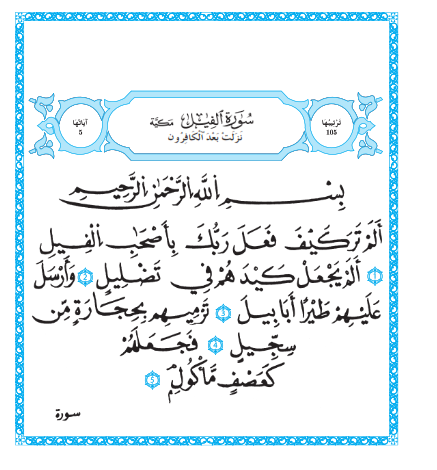 ترتيبها
105
سُورَةُ الفِيلِ مَكيَّة
نَزَلَتْ بَعْدَ الْكَافِرُون
آياتها
5
بِسْمِ اللَّهِ الرَّحْمَٰنِ الرَّحِيمِ
أَلَمْ تَرَ كَيْفَ فَعَلَ رَبُّكَ بِأَصْحَٰبِ الْفِيلِ
1 أَلَمْ يَجْعَلْ كَيْدَهُمْ فِي تَضْلِيلٍ 2 وَأَرْسَلَ
عَلَيْهِمْ طَيْرًا أَبَابِيلَ 3 تَرْمِيهِم بِحِجَارَةٍ مِّن
سِجِّيلٍ 4 فَجَعَلَهُمْ
كَعَصْفٍ مَّأْكُولٍ 5
سورة